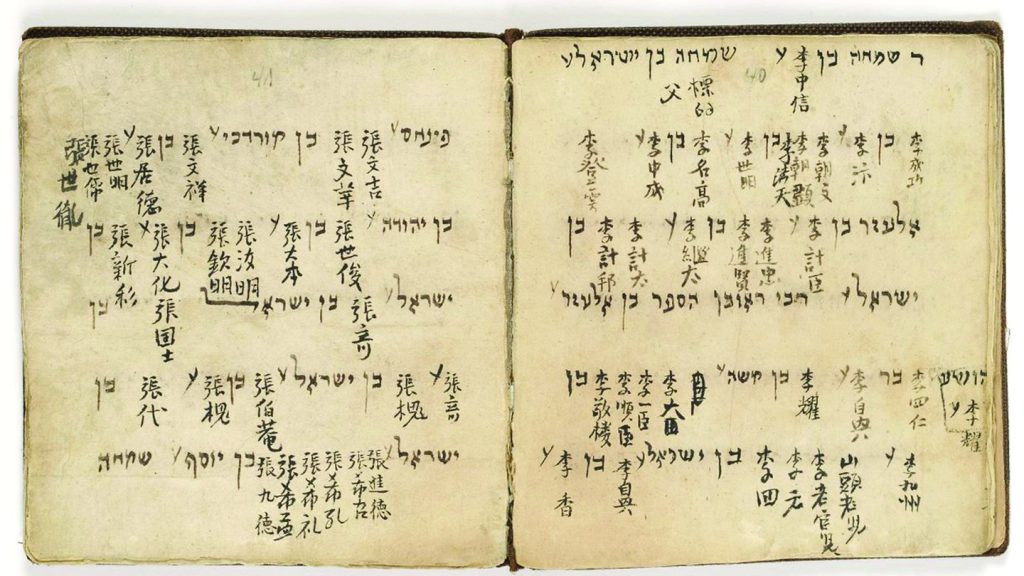 40
ר שמחה בן 李中信 ע שמחה בן ישראל ע
標的父
李成功 בן 李汴 ע 李朝文 李朝顯 李滿天 בן 李世明 ע 李名高 בן 李中成 ע 李登雲
אלעזר בן 李計臣 ע 李進忠 李進賢 בן 李繼太 ע 李計太 李計邦 בן
ישראל ע רבי ראובן הספר בן אלעזר ע
הושע ע 李耀 李四仁 בר 李自興 ע 李耀 בן משה ע 李大臣 李一臣 李順臣 李敬楼 בן
李九州 ע 山頭老児 李老官児 李元 李四 בן ישראל ע 李自興 בן 李香 ע
41
פינחס ע 張文吉 張文举 בן מורדכי ע 張文祥 בן 張居德 ע 張世明 張世偉 張世胤
בן יהודה ע 張世俊 בן 張大本 ע 張汝明 張欽明 בן 張大化 ע 張新彩 בן
ישראל ע 張奇 בן ישראל 張国士 בן
張奇 ע 張槐 בן ישראל ע 張伯菴 בן 張槐 ע 張代 בן
ישראל ע 張進德 張希召 張希孔 張希礼 張希孟 張九德 בן יוסף ע שמחה